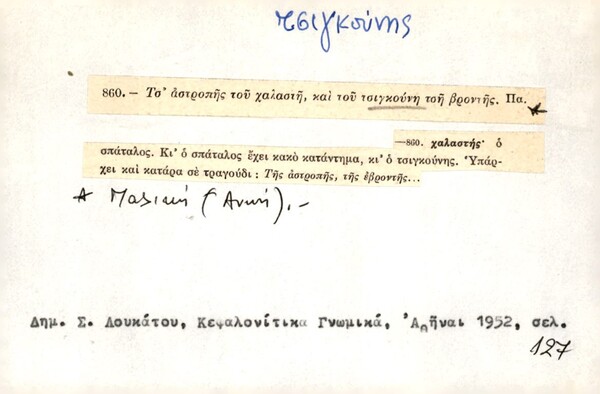 τσιγκούνης
860. – Τσ' ἀστροπῆς τοῦ χαλαστῆ, καὶ τοῦ τσιγκούνη τσῆ βροντῆς. Πα.
—860. χαλαστής· ὁ
σπάταλος. Κι' ὁ σπάταλος ἔχει κακὸ κατάντημα, κι' ὁ τσιγκούνης. Ὑπάρ-
χει καὶ κατάρα σὲ τραγούδι: Τῆς ἀστροπῆς, τῆς ἐβροντῆς...
(Ἀνωή).–
Δημ. Σ. Λουκάτου, Κεφαλονίτικα Γνωμικά, Ἀθῆναι 1952, σελ.
127